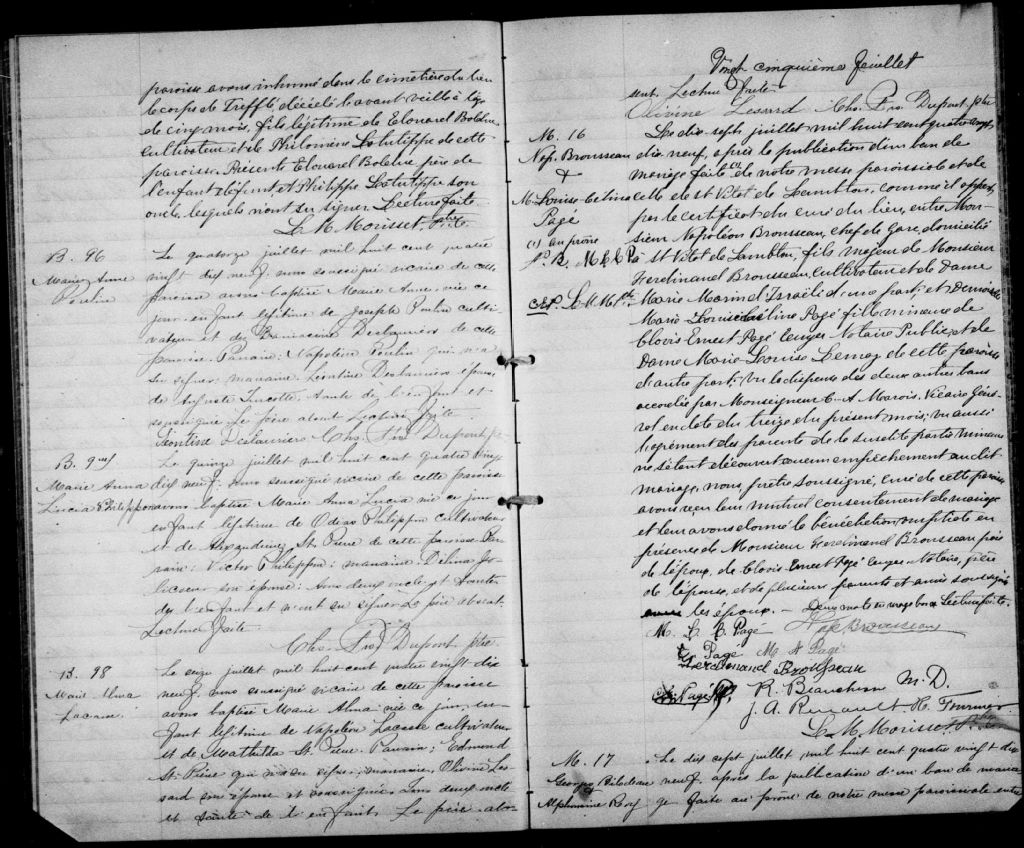 paroisse avons inhumé dans le cimetière du lieu
le corps de Trefflé, décédé l'avant veille à l'âge
de cinq mois, fils légitime de Edouard Bolduc
cultivateur et de Philomène Latulippe de cette
paroisse. Présents Edouard Bolduc père de
l'enfant défunt et Philippe Latulippe son
oncle, lesquels n'ont su signer. Lecture faite
L. M. Morisset. Ptre
B. 96
Marie Anne
Poulin
Le quatorze juillet mil huit cent quatre
vingt dix neuf, nous soussigné vicaire de cette
paroisse avons baptisé Marie Anne, née ce
jour enfant légitime de Joseph Poulin culti-
vateur et de Deslauriers de cette
paroisse. Parrain: Napoléon Poulin qui n'a
su signer marraine Léontine Deslauriers épouse
de Auguste Turcotte, tante de l'enfant et
soussignée. Le père absent. Lecture faite
Léontine Deslauriers Chs. Frs Dupont ptre
B. 97
Marie Anna
Lucia Philippon
Le quinze juillet mil huit cent quatre vingt
dix neuf, nous soussigné vicaire de cette paroisse
avons baptisé Marie Anna Lucia née ce jour
enfant légitime de Odias Philippon cultivateur
et de Alexandrine St. Pierre de cette paroisse. Par-
rain: Victor Philippon; marraine: Délina Jo-
licoeur son épouse; oncle et tante
de l'enfant et n'ont su signer. Le père absent.
Lecture faite.
Chs. Frs Dupont ptre
B. 98
Marie Alma
Lacasse
Le seize juillet mil huit cent quatre vingt dix
neuf, nous soussigné vicaire de cette paroisse
avons baptisé Marie Alma née ce jour, en-
fant légitime de Napoléon Lacasse cultivateur
et de Mathilda St. Pierre. Parrain; Edmond
St. Pierre qui n'a su signer, marraine, Olivine Les-
sard son épouse et soussignée. oncle
et tante de l'enfant. Le père absen-
Vingt cinquième feuillet
sent. Lecture faite
Olivine Lessard Chs. Frs. Dupont ptre
M. 16
Nap. Brousseau
&
M. Louise-Celina
Pagé
(1) au prône
Le dix-sept juillet mil huit cent quatre vingt
dix neuf, après la publication d'un ban de
mariage faite (1) de notre messe paroissiale et de
celle de St Vital de Lambton, comme il appert
par le certificat du curé du lieu, entre Mon-
sieur Napoléon Brousseau, chef de Gare, domicilié
à St Vital de Lambton, fils majeur de Monsieur
Ferdinand Brousseau, cultivateur et de Dame
Marie Marin d'Israëli d'une part; et Demoiselle
Marie Louise Céline Pagé fille mineure de
Clovis Ernest Pagé Ecuyer Notaire Public et de
Dame Marie-Louise Lemay de cette paroisse
d'autre part; Vu la dispense des deux autres bans
accordée par Monseigneur C.-A Marois, Vicaire Géné-
ral en date du treize du présent mois; vu aussi
l'agrément des parents de la susdite partie mineure
ne s'étant découvert aucun empêchement au dit
mariage, nous, prêtre soussigné, curé de cette paroisse
avons reçu leur mutuel consentement de mariage
et leur avons donné la bénédiction nuptiale en
présence de Monsieur Ferdinand Brousseau père
de l'époux, de Clovis Ernest Pagé Ecuyer, Notaire, père
de l'épouse, et de plusieurs parents et amis soussignés
avec les époux. - Deux mots en marge bons Lecture faite.
M. L. C. Pagé Nap. Brousseau
Pagé M A Pagé
Ferdinand Brousseau
Pagé N.P. R. Beaudoin M. D.
J. A. Renault H. Fournier
L. M. Morisset Ptre
M. 17
Georges Bilodeau
&
Alphonsine Roy
Le dix sept juillet, mil huit cent quatre vingt dix
neuf, après la publication d'un ban de maria-
ge faite au prône de notre messe paroissiale entre